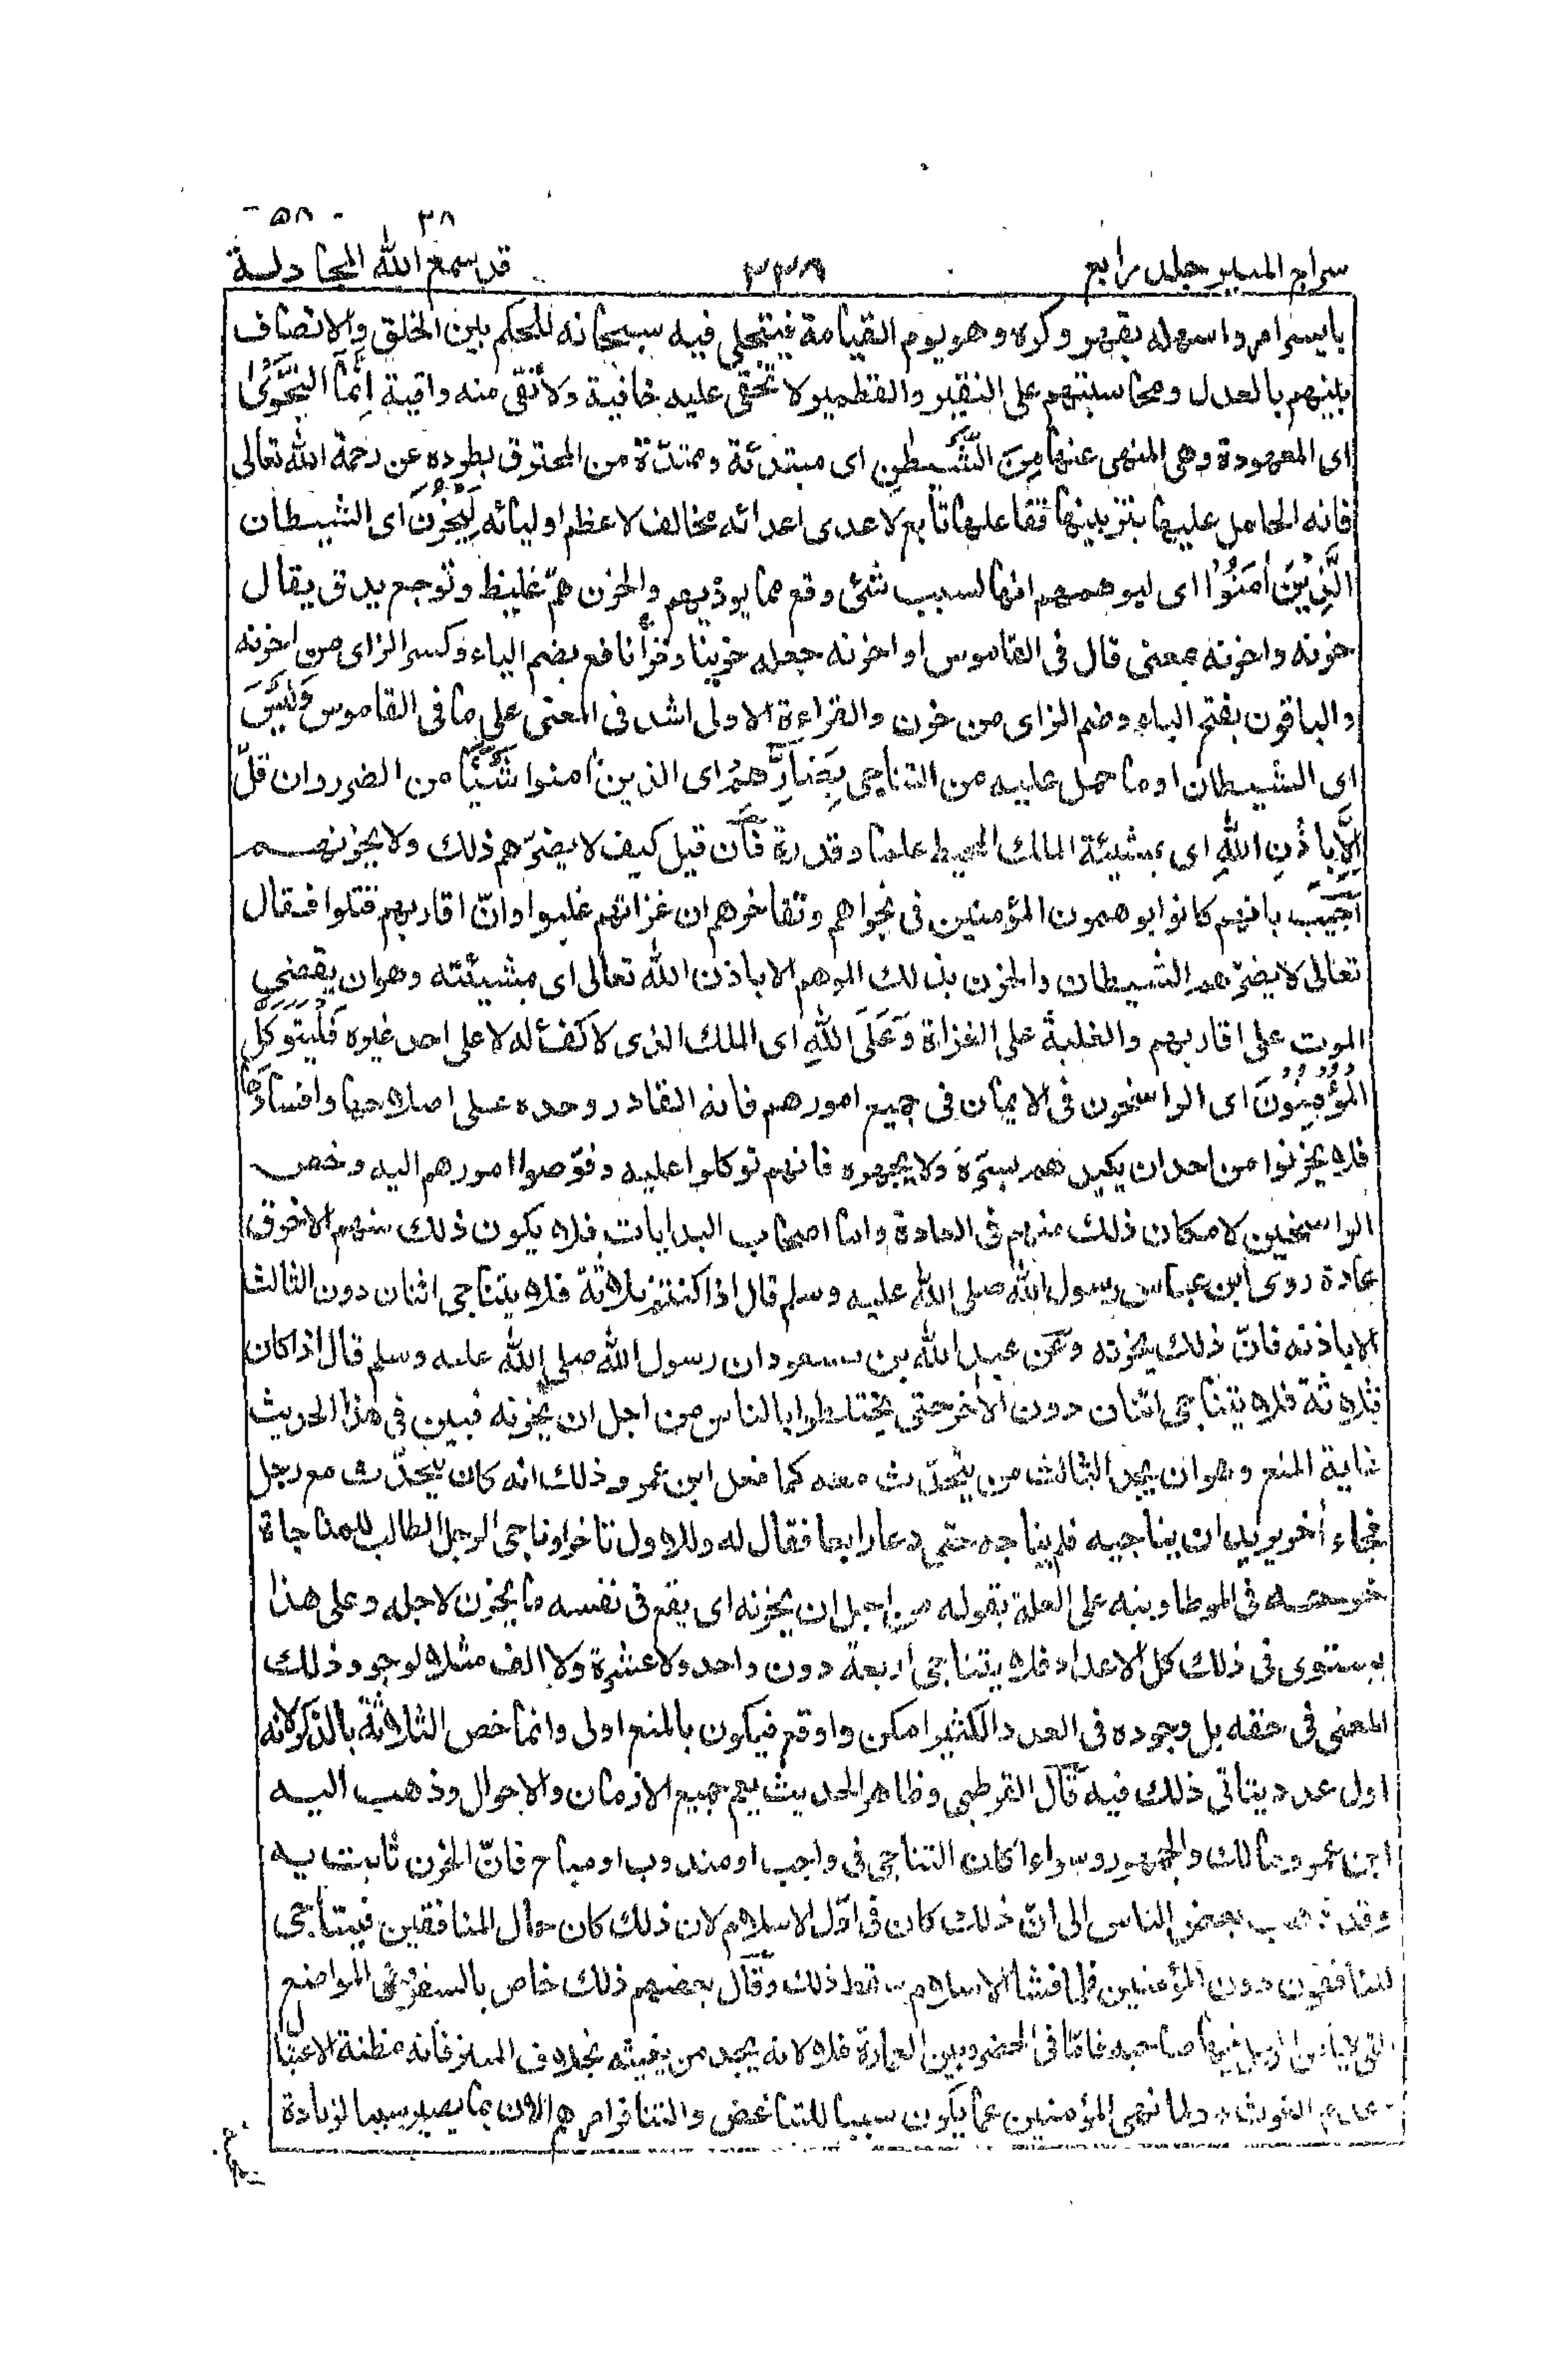 ٢٨ - ٥٨ -
سراج المنير جلد رابع ٢٣٨ قد سمع الله المجادلة
بايسر امر واسهله بقهر وكره وهو يوم القيامة فيتجلى فيه سبحانه للحكم بين الخلق والانصاف
بينهم بالعدل ومحاسبتهم على النقير والقطمير ولا تخفى عليه خافية ولا تقى منه واقية اِنَّمَا النَّجْوٰى
اى المعهودة وهى المنهى عنها مِنَ الشَّيْطٰنِ اى مبتدئة وممتدّة من المحترق بطرده عن رحمة الله تعالى
فانه الحامل عليها بتزيينها ففاعلها تابع لاعدى اعدائه مخالف لاعظم اوليائه لِيَحْزُنَ اى الشيطان
الَّذِيْنَ اٰمَنُوْا اى ليوهمهم انها لسبب شئ وقع مما يوذيهم والحزن همّ غليظ وتوجع يدق يقال
حزنه واحزنه بمعنى قال فى القاموس او احزنه جعله حزينا وقرأ نافع بضم الياء وكسر الزاى من احزنه
والباقون بفتح الياء وضم الزاى من حزن والقراءة الاولى اشد فى المعنى على ما فى القاموس وَلَيْسَ
اى الشيطان او ما حمل عليه من التناجى بِضَآرِّهِمْ اى الذين اٰمنوا شَيْئًا من الضرر وان قلّ
اِلَّا بِاِذْنِ اللّٰهِ اى بمشيئة المالك المحيط علما وقدرة فان قيل كيف لا يضرّهم ذلك ولا يحزنهم
اجيب بانهم كانوا يوهمون المؤمنين فى نجواهم وتفاخرهم ان غزاتهم غلبوا وانّ اقاربهم قتلوا فقال
تعالى لا يضرّهم الشيطان والحزن بذلك الموهم الا باذن الله تعالى اى مشيئته وهو ان يقضى
الموت على اقاربهم والغلبة على الغزاة وَعَلَى اللّٰهِ اى الملك الذى لا كفأ له لا على احد غيره فَلْيَتَوَكَّلِ
الْمُؤْمِنُوْنَ اى الراسخون فى الايمان فى جميع امورهم فانه القادر وحده على اصلاحها وافسادها
فلا يحزنوا من احد ان يكيدهم بسرّه ولا بجهره فانهم توكلوا عليه وفوّضوا امورهم اليه وخص
الراسخين لامكان ذلك منهم فى العادة واما اصحاب البدايات فلا يكون ذلك منهم الا خرق
عادة روى ابن عباس رسول الله صلى الله عليه وسلم قال اذا كنتم ثلاثة فلا يتناجى اثنان دون الثالث
الا باذنه فانّ ذلك يحزنه وعن عبد الله بن مسعود ان رسول الله صلى الله عليه وسلم قال اذا كان
ثلاثة فلا يتناجى اثنان دون الاٰخر حتى يختلطوا بالناس من اجل ان يحزنه فبين فى هذا الحديث
غاية المنع وهو ان يجد الثالث من يتحدّث معه كما فعل ابن عمر وذلك انه كان يتحدّث مع رجل
فجاء اٰخر يريد ان يناجيه فلم يناجه حتى دعا رابعا فقال له وللاول تاخرا وناجى الرجل الطالب للمناجاة
خرجه فى الموطا ونبه على العلة بقوله من اجل ان يحزنه اى يقع فى نفسه ما يحزن لاجله وعلى هذا
يستوى فى ذلك كل الاعداد فلا يتناجى اربعة دون واحد ولا عشرة ولا الف مثلا لوجود ذلك
المعنى فى حقه بل وجوده فى العدد الكثير امكن واوقع فيكون بالمنع اولى وانما خص الثلاثة بالذكر لانه
اول عدد يتاتى ذلك فيه قال القرطبى وظاهر الحديث يعم جميع الازمان والاحوال وذهب اليه
ابن عمر ومالك والجمهور وسواء اكان التناجى فى واجب او مندوب او مباح فانّ الحزن ثابت به
وقد ذهب بعض الناس الى انّ ذلك كان فى اوّل الاسلام لان ذلك كان حال المنافقين فيتناجى
المنافقون دون المؤمنين فلما فشا الاسلام سقط ذلك وقال بعضهم ذلك خاص بالسفر وفى المواضع
التى لا يامن الرجل فيها صاحبه فامّا فى الحضر وبين العمارة فلا لانه يجد من يغيثه بخلاف السفر فانه مظنة الاغتيال
وعدم الغوث ولما نهى المؤمنين عما يكون سببا للتباغض والتنافر امرهم الاٰن بما يصير سببا لزيادة